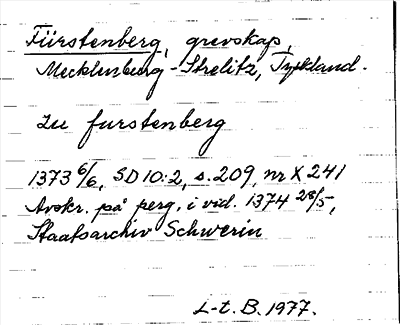 Fürstenberg, grevskap,
Mecklenburg-Strelitz, Tyskland.
Zu furstenberg
1373 6/6, SD 10:2, s. 209, nr X 241
Avskr. på perg. i vid. 1374 28/5,
Staatsarchiv Schwerin
L-t. B. 1977.